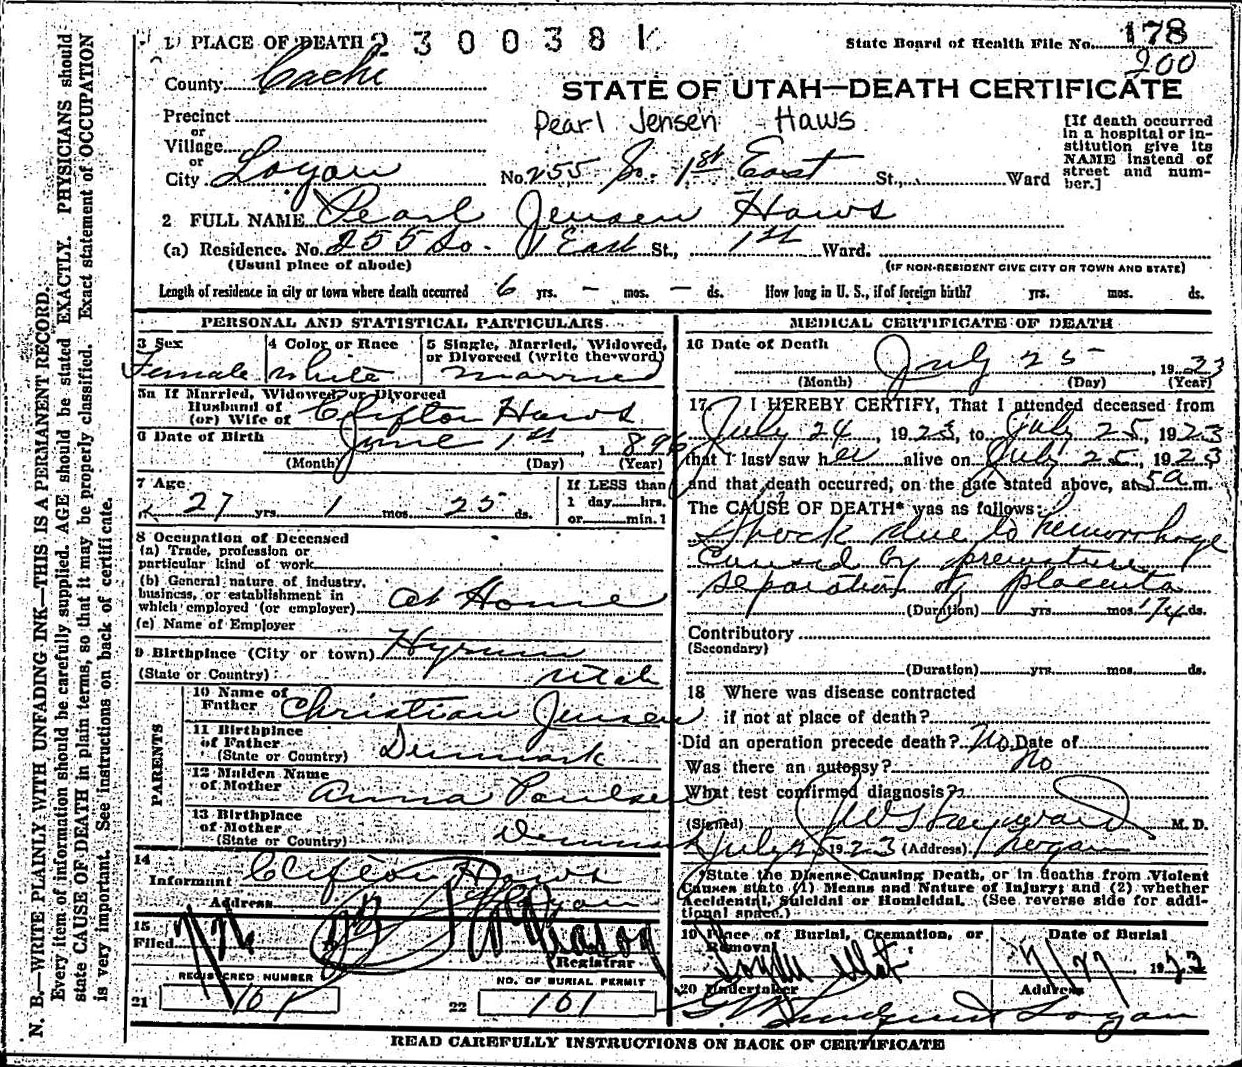 1 PLACE OF DEATH 2 3 0 0 3 8 1
State Board of Health File No. 178
200
County Cache
STATE OF UTAH—DEATH CERTIFICATE
Precinct
Pearl Jensen Haws
or
Village
or
City Logan
No. 255 So. 1st East St., Ward
[If death occurred
in a hospital or in-
stitution give its
NAME instead of
street and num-
ber.]
2 FULL NAME Pearl Jensen Haws
(a) Residence. No. 255 So. 1 East St., 1st Ward.
(Usual place of abode)
(IF NON-RESIDENT GIVE CITY OR TOWN AND STATE)
Length of residence in city or town where death occurred 6 yrs. - mos. - ds. How long in U. S., if of foreign birth? yrs. mos. ds.
PERSONAL AND STATISTICAL PARTICULARS
3 Sex
Female
4 Color or Race
White
5 Single, Married, Widowed,
or Divorced (write the word)
Married
5a If Married, Widowed, or Divorced
Husband of
(or) Wife of Clifton Haws
6 Date of Birth June 1st, 1896
(Month) (Day) (Year)
7 Age
27 yrs. 1 mos. 25 ds.
If LESS than
1 day hrs.
or min.?
8 Occupation of Deceased
(a) Trade, profession or
particular kind of work
(b) General nature of industry,
business, or establishment in
which employed (or employer) At Home
(c) Name of Employer
9 Birthplace (City or town) Hyrum
(State or Country) Utah
PARENTS
10 Name of
Father Christian Jensen
11 Birthplace
of Father
(State or Country) Denmark
12 Maiden Name
of Mother Anna Poulsen
13 Birthplace
of Mother
(State or Country) Denmark
14
Informant Clifton Haws
Address Logan
15
Filed
Registrar
REGISTERED NUMBER
21 101
NO. OF BURIAL PERMIT
22 101
MEDICAL CERTIFICATE OF DEATH
16 Date of Death
July 25, 1923
(Month) (Day) (Year)
17. I HEREBY CERTIFY, That I attended deceased from
July 24, 1923, to July 25, 1923
that I last saw her alive on July 25, 1923
and that death occurred, on the date stated above, at 5 a m.
The CAUSE OF DEATH* was as follows:
Shock due to hemorrhage
caused by premature
separation of placenta
(Duration) yrs. mos. 1/4 ds.
Contributory
(Secondary)
(Duration) yrs. mos. ds.
18 Where was disease contracted
if not at place of death?
Did an operation precede death? No Date of
Was there an autopsy? No
What test confirmed diagnosis?
(Signed) M. D.
July 1923 (Address) Logan
*State the Disease Causing Death, or in deaths from Violent
Causes state (1) Means and Nature of Injury; and (2) whether
Accidental, Suicidal or Homicidal. (See reverse side for addi-
tional space.)
19 Place of Burial, Cremation, or
Removal
Logan Utah
Date of Burial
7/27 1923
20 Undertaker
Address
Logan
READ CAREFULLY INSTRUCTIONS ON BACK OF CERTIFICATE
N. B.—WRITE PLAINLY WITH UNFADING INK—THIS IS A PERMANENT RECORD.
Every item of information should be carefully supplied. AGE should be stated EXACTLY. PHYSICIANS should
state CAUSE OF DEATH in plain terms, so that it may be properly classified. Exact statement of OCCUPATION
is very important. See instructions on back of certificate.